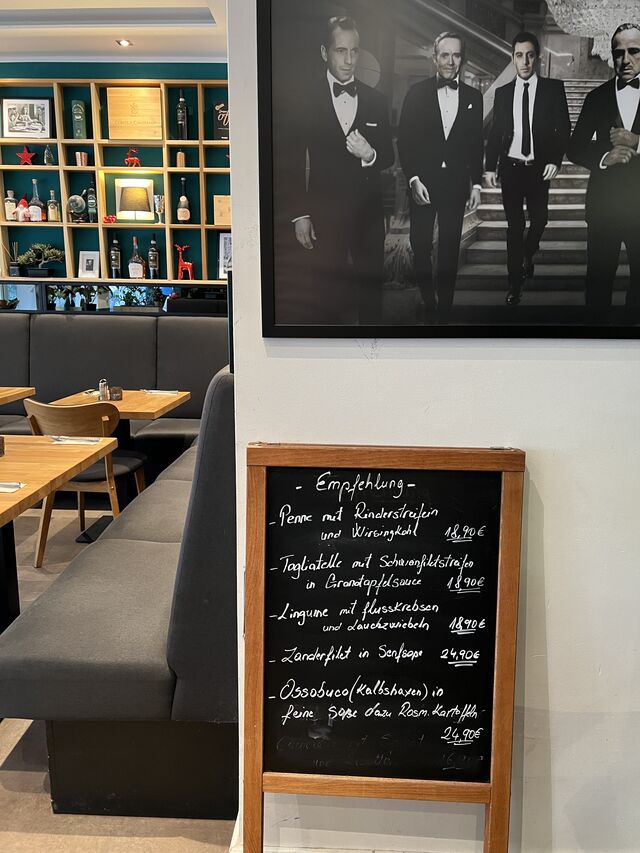 - Empfehlung -
- Penne mit Rinderstreifein
und Wirsingkohl 18,90€
- Tagliatelle mit
in Granatapfelsauce 18,90€
- Linguine mit flusskrebsen
und Lauchzwiebeln 18,90€
- Zanderfilet in 24,90€
- Ossobuco (Kalbshaxen) in
feine Soße dazu Rosm. Kartoffeln
24,90€